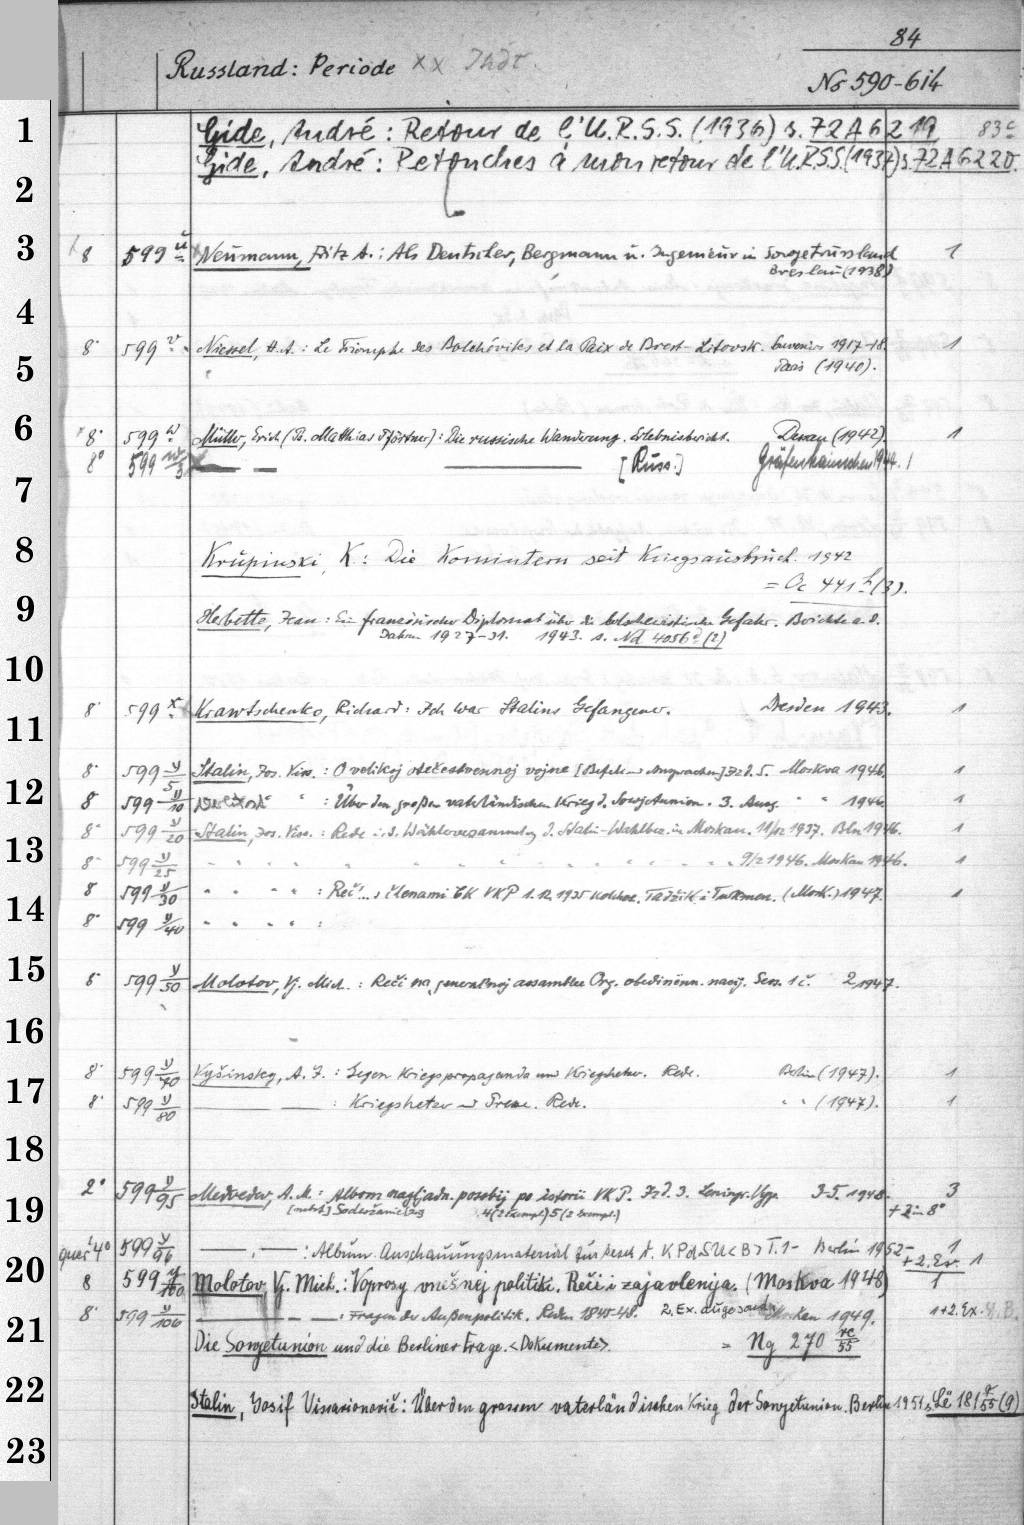 84
Russland: Periode XX Jhdt.
No 590-614
1
Gide, André: Retour de l'U.R.S.S. (1936) s. 72 A 6219 83c
Gide, André: Retouches à mon retour de l'U.R.S.S. (1937) s. 72 A 6220.
2
3
8 599 u Neumann, Fritz A.: Als Deutscher, Bergmann u. Ingenieur in Sowjetrussland 1
Breslau (1938)
4
8° 599 v Niessel, H.A.: Le Triomphe des Bolchéviks et la Paix de Brest-Litovsk. Souvenirs 1917-18. 1
Paris (1940).
5
6
8° 599 w Müller, Erich (Ps. Matthias Pförtner): Die russische Wanderung. Erlebnisbericht. Dessau (1942). 1
8° 599 w/3 [Russ.] Gräfenhainichen 1944. 1
7
8
Krupinski, K: Die Komintern seit Kriegsausbruch. 1942
= Oc 441 h (3).
9
Herbette, Jean: Ein französischer Diplomat über die bolschewistische Gefahr. Berichte a. d.
Jahren 1927-31. 1943. s. Nd 4056 (2)
10
8° 599 x Krawtschenko, Richard: Ich war Stalins Gefangener. Dresden 1943. 1
11
8° 599 y/5 Stalin, Jos. Viss.: O velikoj otečestvennoj vojne [Befehle und Ansprachen] Izd. 5. Moskva 1946. 1
12
8° 599 y/10 " : Über den großen vaterländischen Krieg d. Sowjetunion. 3. Ausg. " " 1946 1
8° 599 y/20 Stalin, Jos. Viss.: Rede i. d. Wählerversammlung d. Stalin-Wahlbez. in Moskau. 11/12 1937. Bln 1946. 1
13
8° 599 y/25 " " " " " " " " " " " " 9/2 1946. Moskau 1946. 1
8° 599 y/30 " " " " : Reč'... s členami CK VKP 1. 12. 1935 kolchoz. Tadžik. i Turkmen. (Mosk.) 1947. 1
14
8° 599 y/40 " " " " :
15
8 599 y/50 Molotov, Vj. Mich.: Reči na general'noj assamblee Org. ob-edinënn. nacij. Sess. 1 č. 2 1947.
16
8° 599 y/70 Vyšinskij, A. J.: Gegen Kriegspropaganda und Kriegshetzer. Rede. Berlin (1947). 1
17
8° 599 y/80 : Kriegshetzer und Presse. Rede. " " (1947). 1
18
2° 599 y/95 Medvedev, A. M.: Albom nagljadn. posobij po istorii VKP. Izd. 3. Leningr. Upp. 3-5. 1948. 3
19
[nebst] Soderžanie 4 (2 Exempl.) 5 (2 Exempl.) + 2 in 8°
quer 4° 599 y/96 : Album. Anschauungsmaterial zur Gesch. d. KPdSU<B> T. 1- Berlin 1952- 1
+ 2. Ex. 1
20
8 599 y/100 Molotov, Vj. Mich.: Voprosy vnešnej politiki. Reči i zajavlenija. (Moskva 1948) 1
8° 599 y/106 : Fragen der Außenpolitik. Reden 1945-48. 2. Ex. ausgesond. Moskau 1949. 1+2. Ex.
21
Die Sowjetunion und die Berliner Frage. <Dokumente> = Ng 270 rc/55
22
Stalin, Iosif Vissarionovič: Über den grossen vaterländischen Krieg der Sowjetunion. Berlin 1951 s. Lë 181 r/55 (9)
23